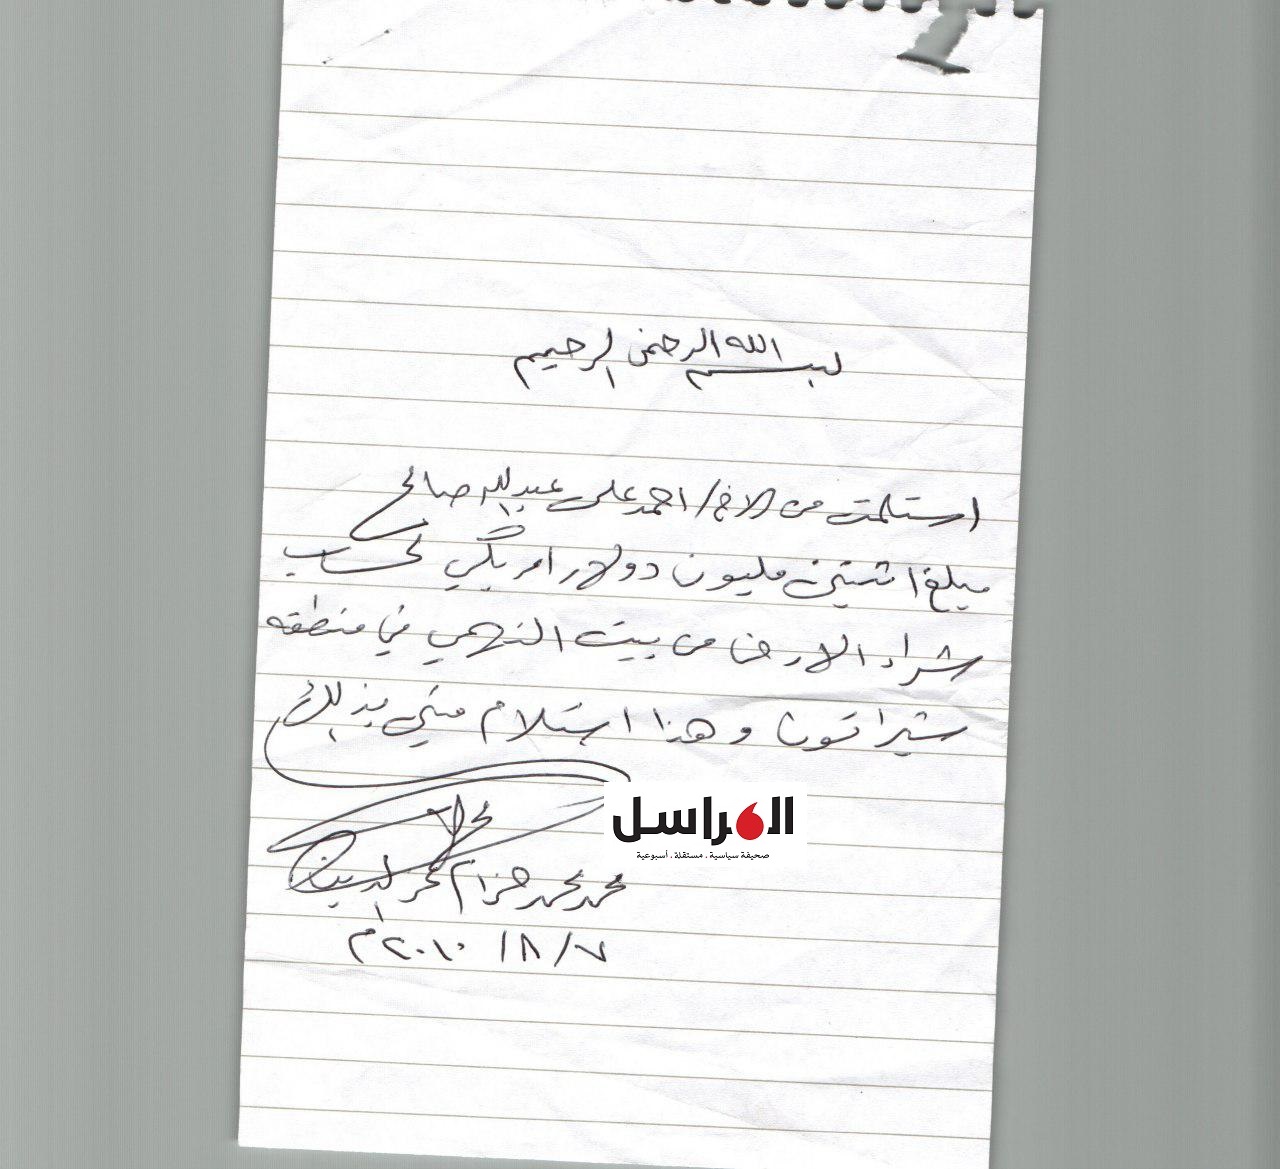 بسم الله الرحمن الرحيم
استلمت من الاخ/ احمد علي عبدالله صالح
مبلغ اثنين مليون دولار امريكي لحساب
شراء الارض من بيت النهمي في منطقه
شيراتون وهذا استلام مني بذلك
المراسل
صحيفة سياسية . مستقلة . أسبوعية
محمد محمد حزام
٧/ ٨/ ٢٠١٠م